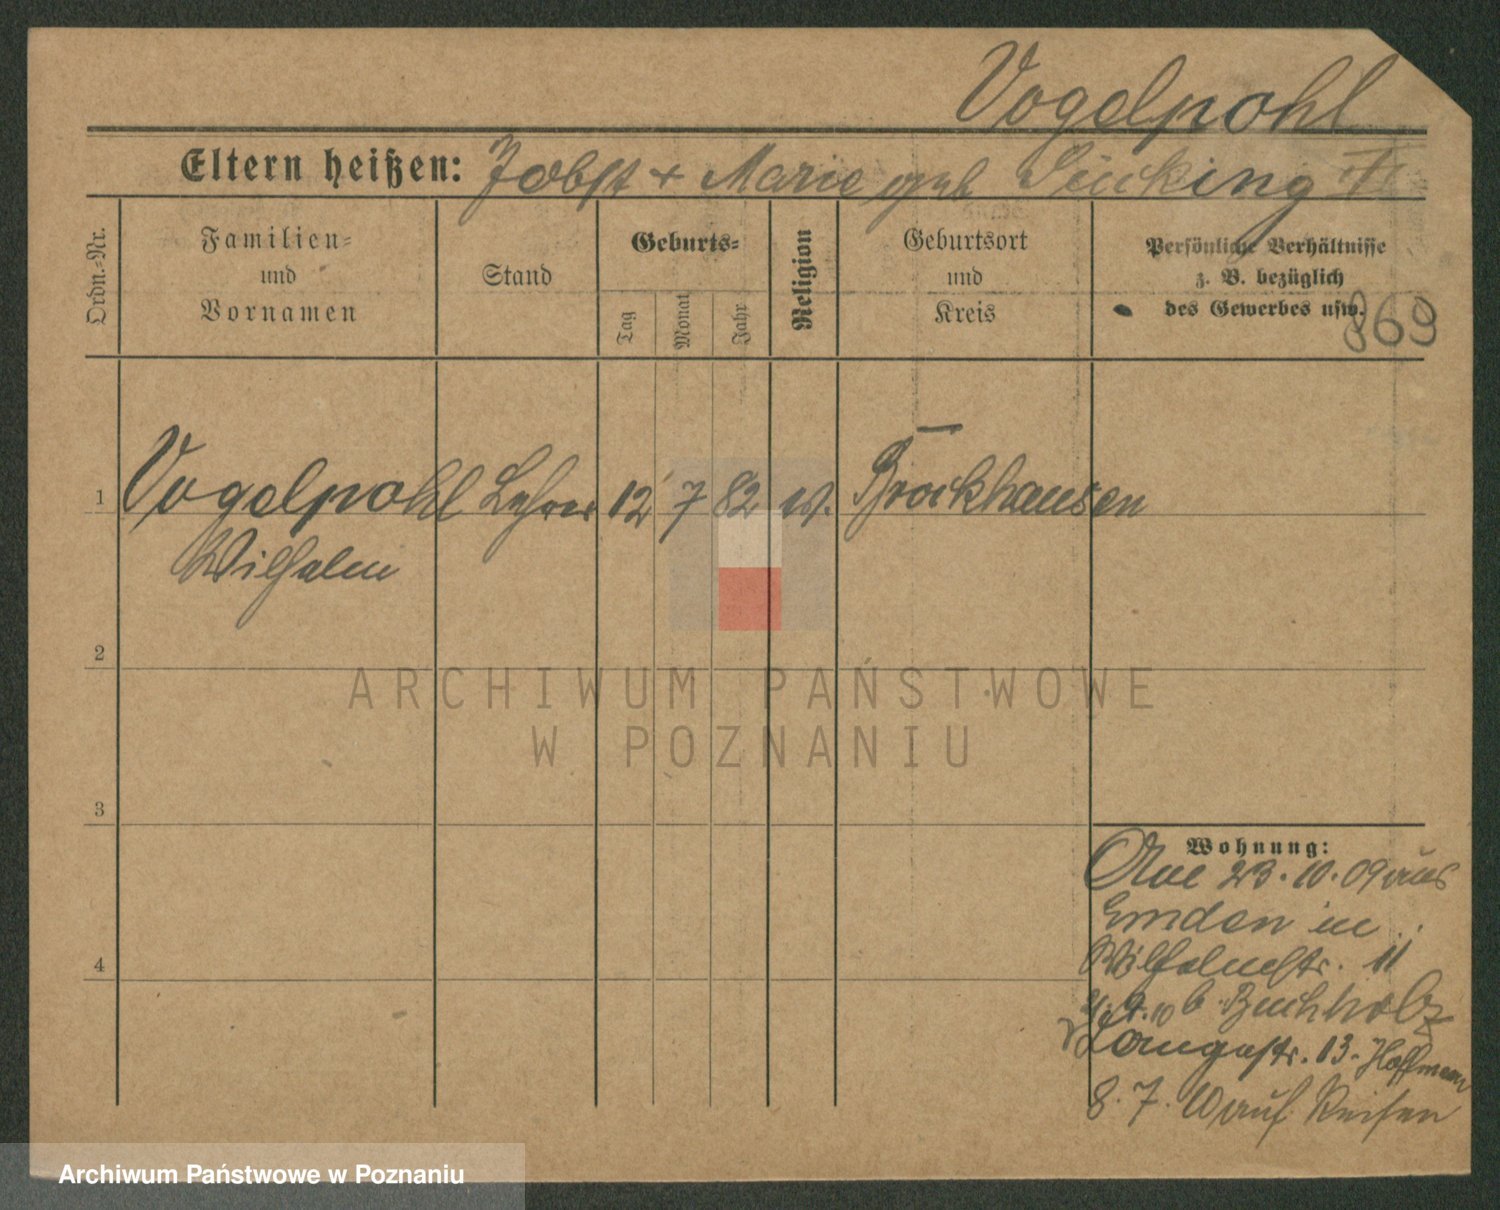 Vogelpohl
Eltern heißen: Jobst + Marie geb Sücking
Ordn.-Nr.
Familien=
und
Vornamen
Stand
Geburts=
Tag
Monat
Jahr
Religion
Geburtsort
und
Kreis
Persönliche Verhältnisse
z. B. bezüglich
des Gewerbes usw.
869
1 Vogelpohl Lehrer 12 7 82 Brockhausen
Wilhelm
2
3
4
Wohnung:
23.10.09 aus
Emden in
Wilhelmstr. 11
b Buchholz
Langestr. 13. Hoffmann
8. 7. 10 auf Reisen
ARCHIWUM PAŃSTWOWE
W POZNANIU
Archiwum Państwowe w Poznaniu